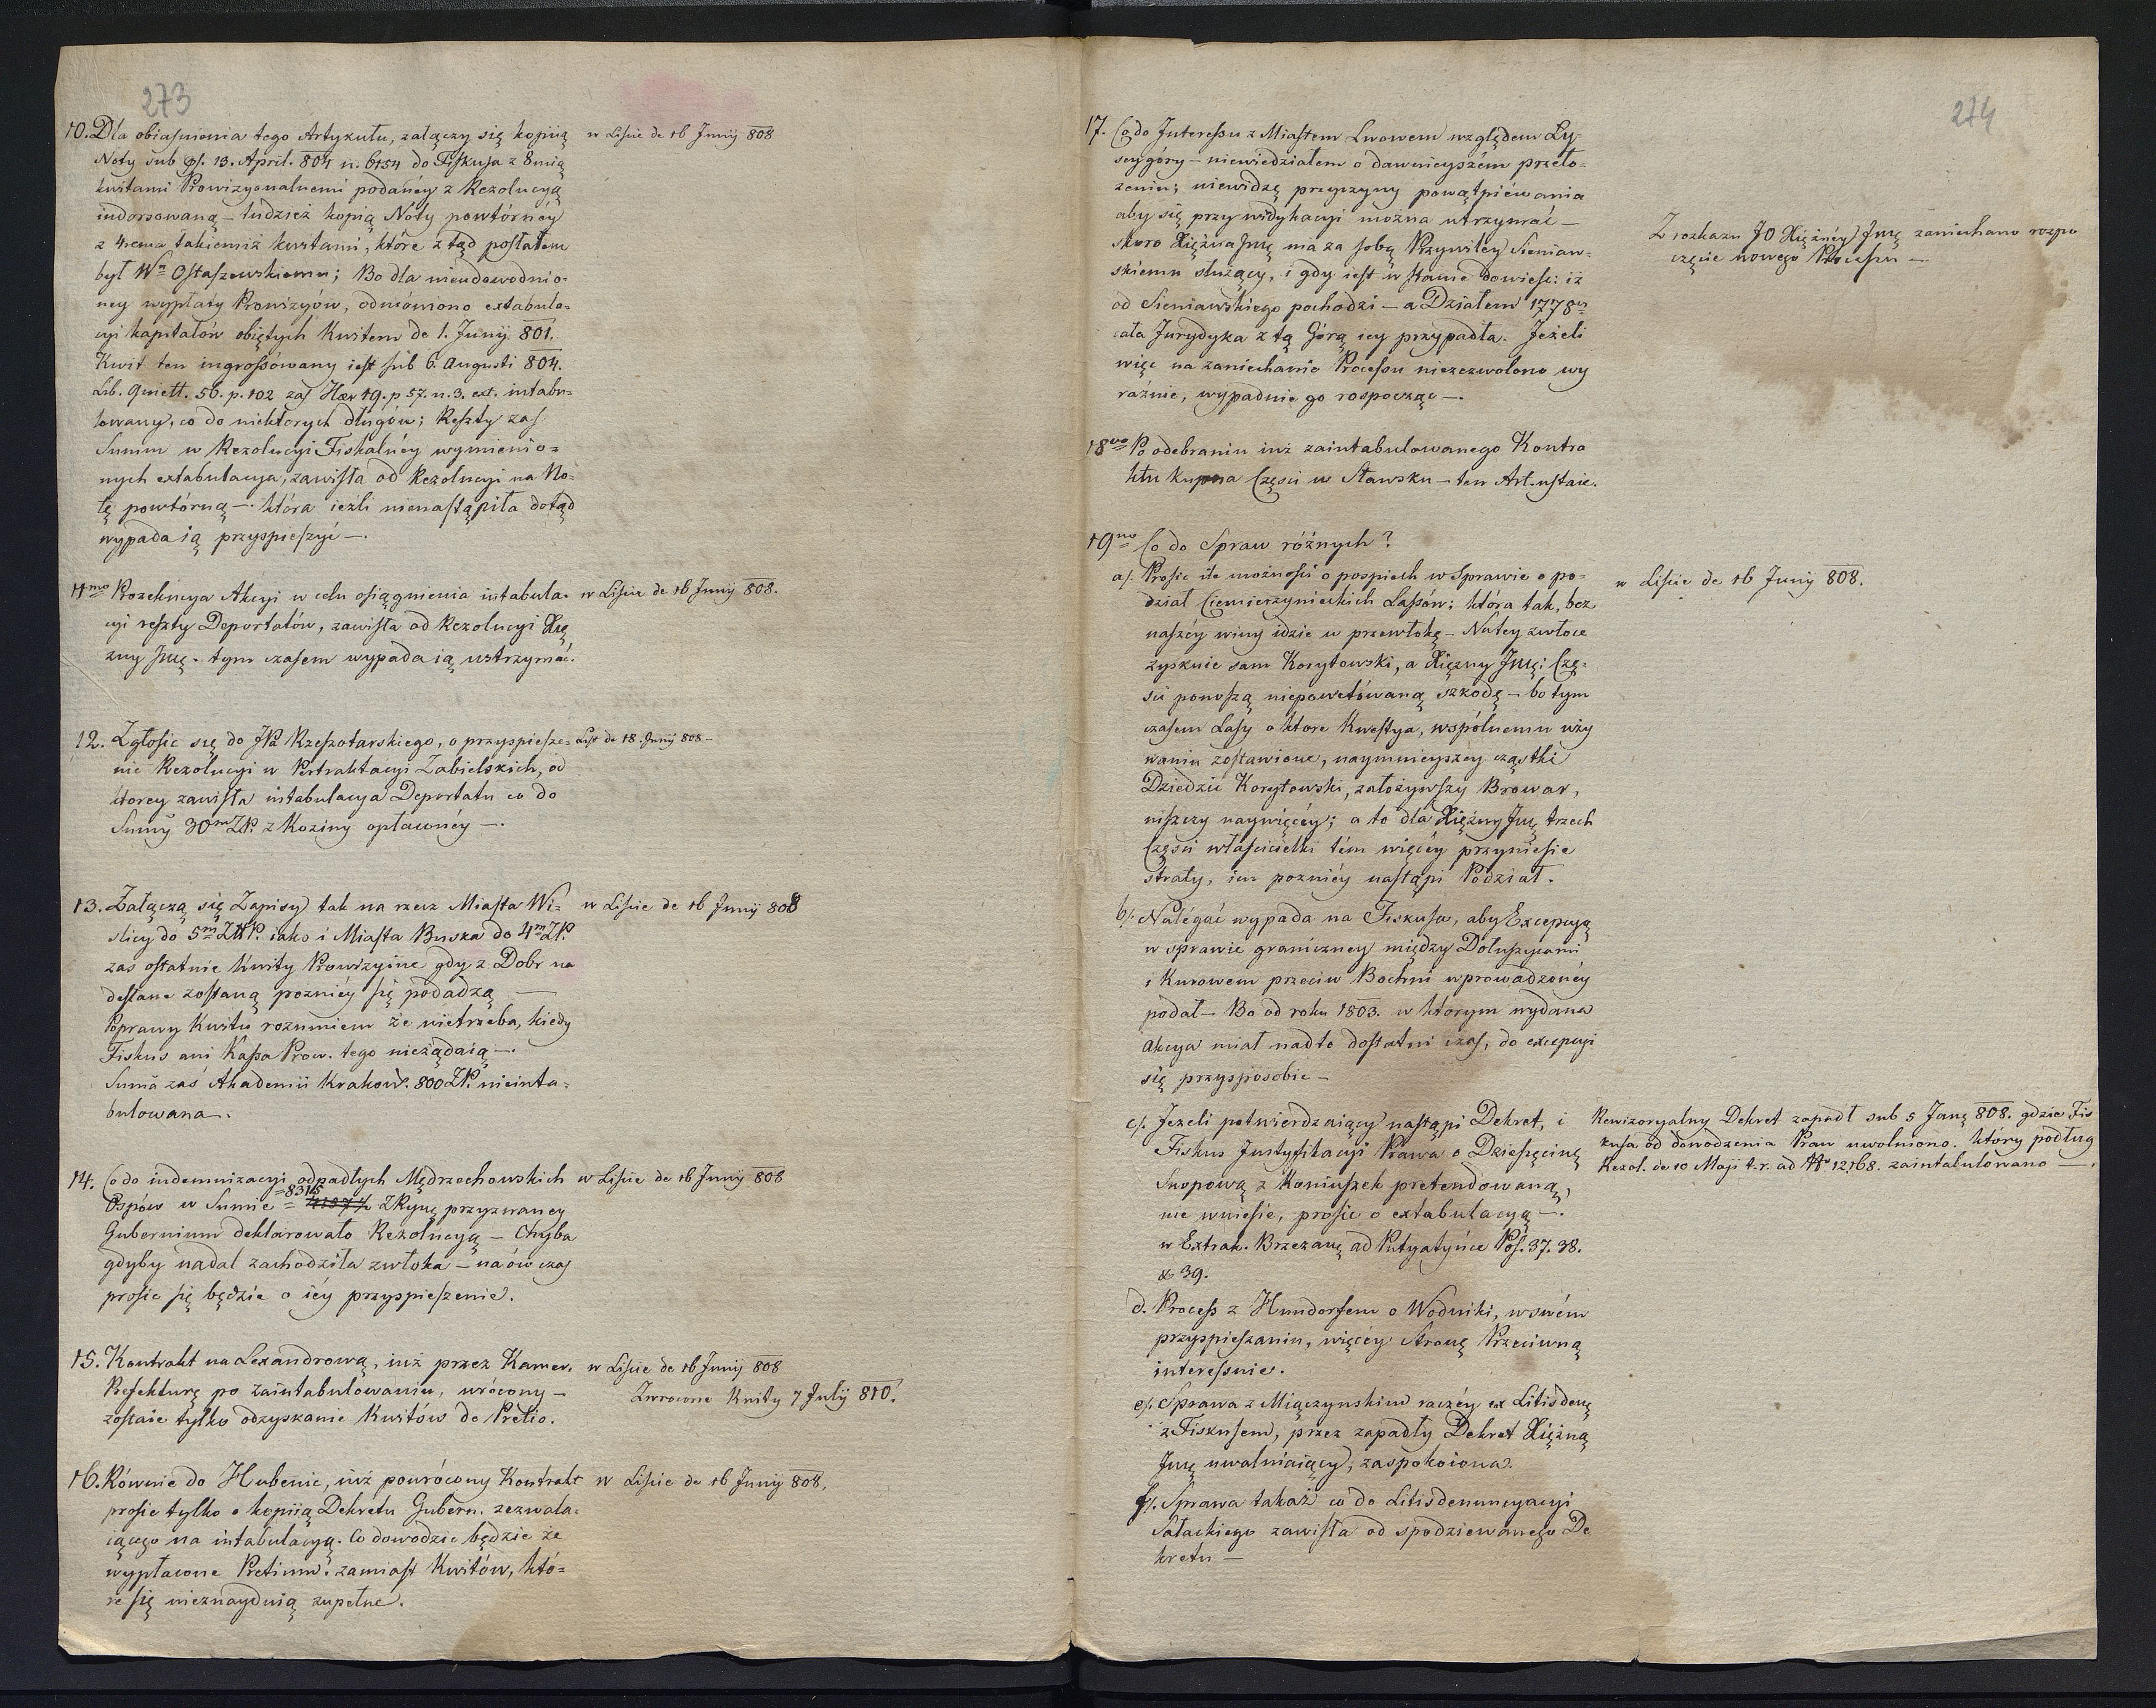 273
10. Dla obiasnienia tego Artykułu, załączy się kopiią
Noty sub ps. 13. April. 804 n. 6454 do Fiskusa z 8mią
kwitami Prowizyonalnemi podanéy z Rezolucyą
indorsowaną – tudzież kopią Noty powtórnéy
z 4rema takiemiż kwitami, które z tąd posłałem
był Wu Ostaszewskiemu; Bo dla nieudowodnio=
ney wypłaty Prowizyów, odmówiono extabula=
cyi kapitałów obiętych Kwitem de 1. Junij 801.
Kwit ten ingrossówany iest sub 6. Augusti 804.
Lib. Quiett. 56. p. 102 zas Haer 19. p 57. n. 3. ext. intabu=
lowany, co do niektorych długów; Reszty zas
Summ w Rezolucyi Fiskalnéy wymienio=
nych extabulacya, zawisła od Rezolucyi na No=
tę powtórną –. która ieżli nienastąpiła dotąd
wypada ią przyspieszyć –.
w Liście de 16 Junij 808
11mo Prozekucya Akcyi w celu osiągnienia intabula=
cyi reszty Deportatów, zawisła od Rezolucyi Xię
zny Jmę. tym czasem wypada ią ustrzymać.
w Liście de 16 Junij 808.
12. Zgłosic się do JPa Rzeszotarskiego, o przyspiesze=
nie Rezolucyi w Pertraktacyi Zabielskich, od
ktorey zawisła intabulacya Deportatu co do
Sumy 30m ZP. z Koziny opłaconéy –.
List de 18. Junij 808 –
13. Załączą się Zapisy tak na rzecz Miasta Wi=
slicy do 5m ZłP. iako i Miasta Buska do 4m ZP.
zas ostatnie kwity Prowizyine gdy z Dobr na
desłane zostaną pozniéy się podadzą –
Poprawy Kwitu rozumiem że nietrzeba, kiedy
Fiskus ani Kassa Prow. tego nieżądaią –.
Suma zaś Akademii Krakow. 800 ZP. nieinta=
bulowana.
w Liście de 16 Junij 808
14. Co do indemnizacyi odpadłych Mędrzechowskich
Ospów w Sumie = 8315 ZRynę przyznaney
Gubernium deklarowało Rezolucyą – Chyba
gdyby nadal zachodziła zwłoka – na ów czas
prosic się będzie o iéy przyspieszenie.
w Liście de 16 Junij 808
15. Kontrakt na Lexandrową, iuż przez Kamer.
Prefekturę po zaintabulowaniu, wrócony –
zostaie tylko odzyskanie Kwitów de Pretio.
w Liście de 16 Junij 808
Zwrocone Kwity 7 Julij 810.
16. Równie do Hubenic, iuż powrócony Kontrakt
prosic tylko o kopiią Dekretu Gubern. zezwala=
iącego na intabulacyą. Co dowodzic będzie że
wypłacone Pretium: zamiast Kwitów, któ=
re się nieznayduią zupełne.
w Liście de 16 Junij 808.
274
17. Co do Interessu z Miastem Lwowem względem Ły=
seygóry – niewiedziałem o dawnieyszém przeło=
zeniu; niewidzę przyczyny powątpiéwania
aby się przy widykacyi można utrzymać –
skoro Xiężna Jmę ma za sobą Przywiley Sieniaw=
skiemu służący, i gdy iest w stanie dowiesc: iż
od Sieniawskiego pochodzi – a Działem 1778go
cała Jurydyka z tą Górą iey przypadła. Jeżeli
więc na zaniechanie Processu niezezwolono wy
raźnie, wypadnie go rospocząc –.
Z rozkazu JO Xiężnéy Jmę zaniechano rozpo
częcie nowego Procesu –
18vo Po odebraniu iuż zaintabulowanego Kontra
ktu kupna Częsci w Stawsku – ten Art. ustaie.
19no Co do Spraw różnych?
a/. Prosic ile możności o pospiech w Sprawie o po=
dział Ciemierzynieckich Lassów; która tak, bez
naszéy winy idzie w przewłokę – Natey zwłoce
zyskuie sam Korytowski, a Xięzny Jmę: Czę=
sci ponoszą niepowetówaną szkodę – bo tym
czasem Lasy o ktore Kwestya, wspólnemu uży
waniu zostawione, naymnieyszey cząstki
Dziedzic Korytowski, założywszy Browar,
niszczy naywięcéy; a to dla Xiężny Jmę trzech
Częsci własicielki tém więcéy przyniesie
straty, im pozniéy nastąpi Podział.
w Liście de 16 Junij 808.
b/. Nalégać wypada na Fiskusa, aby Excepcyą
w sprawie graniczney między Dołuszycami
i Kurowem przeciw Bochni wprowadzonéy
podał – Bo od roku 1803. w ktorym wydana
Akcya miał nadto dostatni czas, do excepcyi
się przysposobic –
c/. Jezeli potwierdzaiący nastąpi Dekret, i
Fiskus Justyfikacyi Prawa o Dziesięcinę
Snopową z Koniuszek pretendowaną,
nie wniesie, prosic o extabulacyą –.
w Extrak. Brzezanę ad Putyatyńce Pos. 37. 38.
& 39.
Rewizoryalny Dekret zapadł sub 5 Janę 808. gdzie Fis
kusa od dowodzenia Praw uwolniono. który podług
Rezol. de 10 Maji t. r. ad Nr 12,168. zaintabulowano –.
d. Process z Hundorfem o Wodniki, w swém
przyspieszaniu, więcéy Stronę Przeciwną
interessuie.
e/. Sprawa z Miączynskim raczéy ex Litisdenę
z Fiskusem, przez zapadły Dekret Xiężną
Jmę uwalniaiący, zaspokoiona.
f/. Sprawa takaż co do Litisdenuncyacyi
Sałackiego zawisła od spodziewanego De
kretu –